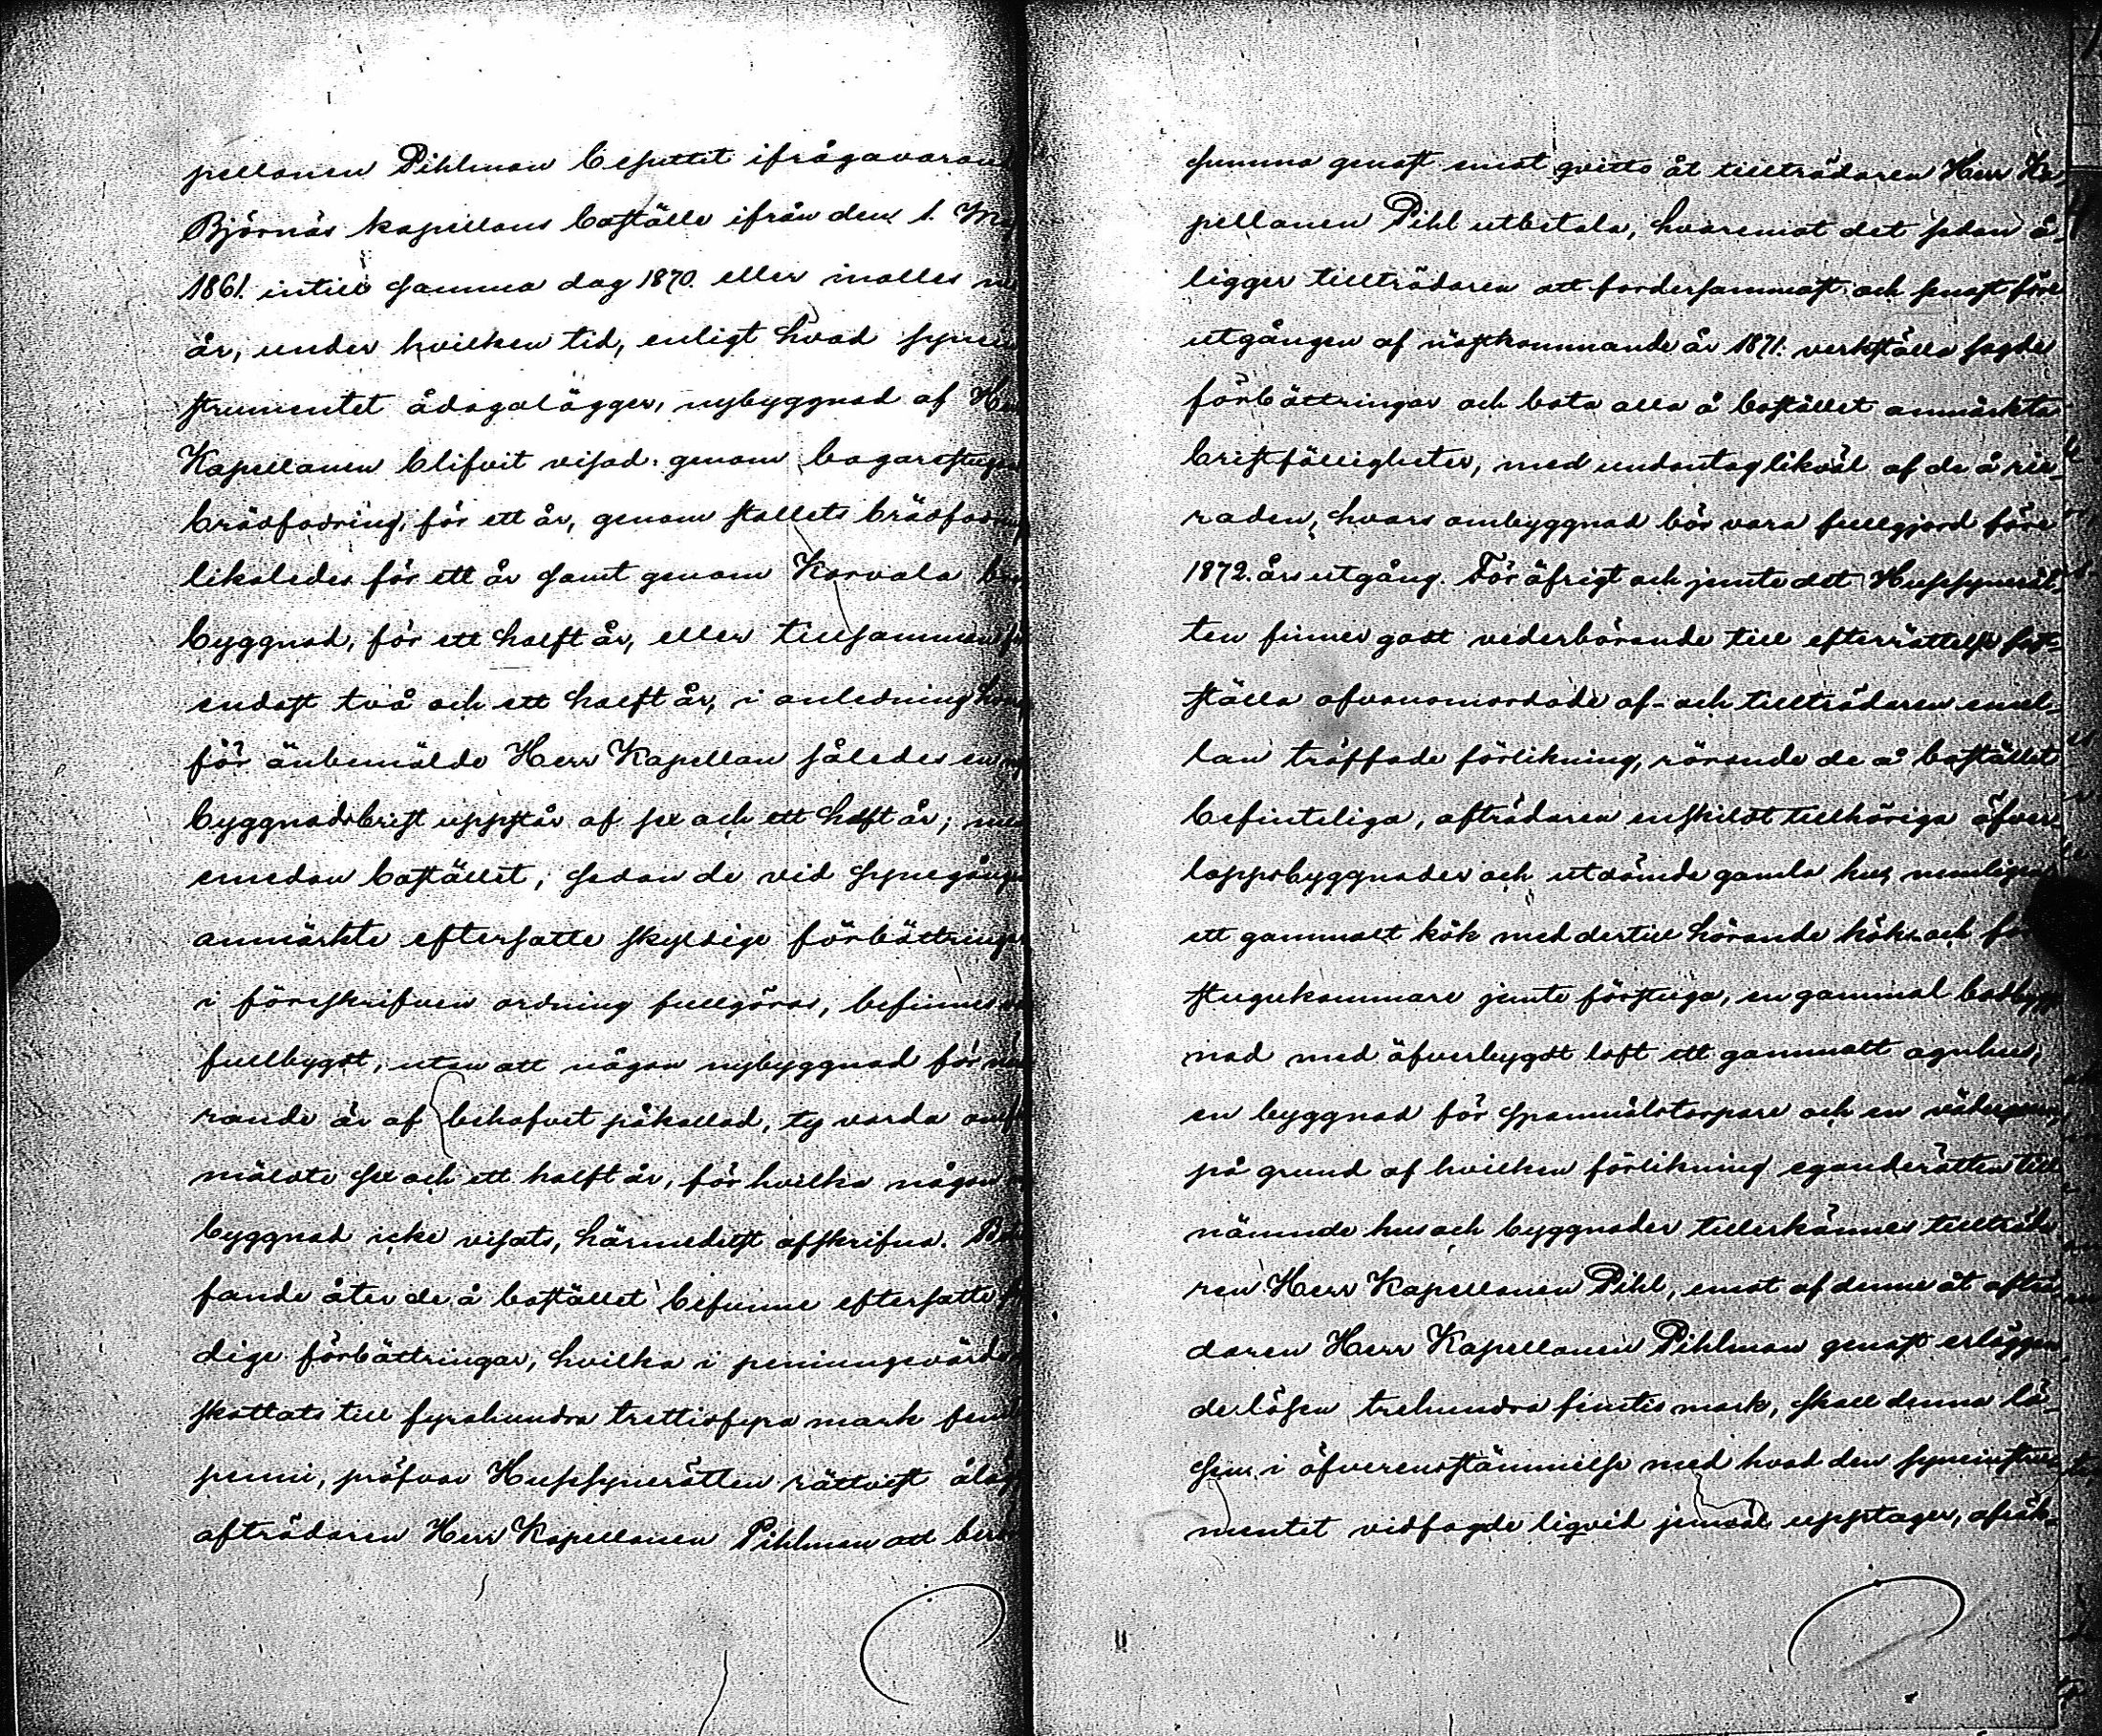 pellanen Pihlman besuttit ifrågavaran
Björnäs kapellans boställe ifrån den 1. M
1861. intill samma dag 1870. eller inalles
år, under hvilken tid, enligt hvad synein
strumentet ådagalägger, nybyggnad af Herr
Kapellanen blifvit visad: genom bagarestugans
brädfodring, för ett år, genom stallets brädfodring
likaledes för ett år samt genom Karvala
byggnad, för ett halft år, eller tillsammans för
endast två och ett halft år, i anledning hvar
för änbemälde Herr Kapellan således en
byggnadsbrist uppstår af sex och ett halft år; men
emedan bostället, sedan de vid synegången
anmärkte eftersatte skyldige förbättringar
i föreskrifven ordning fullgöras, befinnes
fullbygdt, utan att någon nybyggnad för när
rande är af behofvet påkallad, ty varda
mäldte sex och ett halft år, för hvilka någon
byggnad icke visats, härmedelst afskrifna.
fande åter de å bostället befunne eftersatte
dige förbättringar, hvilka i penningevärde
skattats till fyrahundra trettiofyra mark
penni, pröfvar Husesynerätten rättvist
afträdaren Herr Kapellanen Pihlman att
summa genast emot qvitto åt tillträdaren Herr Ka-
pellanen Pihl utbetala, hvaremot det sedan å-
ligger tillträdaren att fordersammast och senast före
utgången af nästkommande år 1871. verkställa sagde
förbättringar och bota alla å bostället anmärkte
bristfälligheter, med undantag likväl af de å rie-
raden, hvars ombyggnad bör vara fullgjord före
1872. års utgång. För öfrigt och jemte det Husesynerät-
ten finner godt vederbörande till efterrättelse fast-
ställa ofvanomordade af- och tillträdaren emel-
lan träffade förlikning, rörande de å bostället
befinteliga, afträdaren enskildt tillhöriga öfver-
loppsbyggnader och utdömde gamla hus, nemligen
ett gammalt kök med dertill hörande köks och för
stugukammare jemte förstuga, en gammal badbygg
nad med öfverbygdt loft ett gammalt agnhus,
en byggnad för spannmålstorpare och en väderqvarn,
på grund af hvilken förlikning eganderätten till
nämnde hus och byggnader tillerkännes tillträda
ren Herr Kapellanen Pihl, emot af denne åt afträ
daren Herr Kapellanen Pihlman genast erläggan
de lösen trehundra femtio mark, skall denna lö-
sen i öfverensstämmelse med hvad den syneinstru
mentet vidfogde liqvid jemväl upptager, afräk-